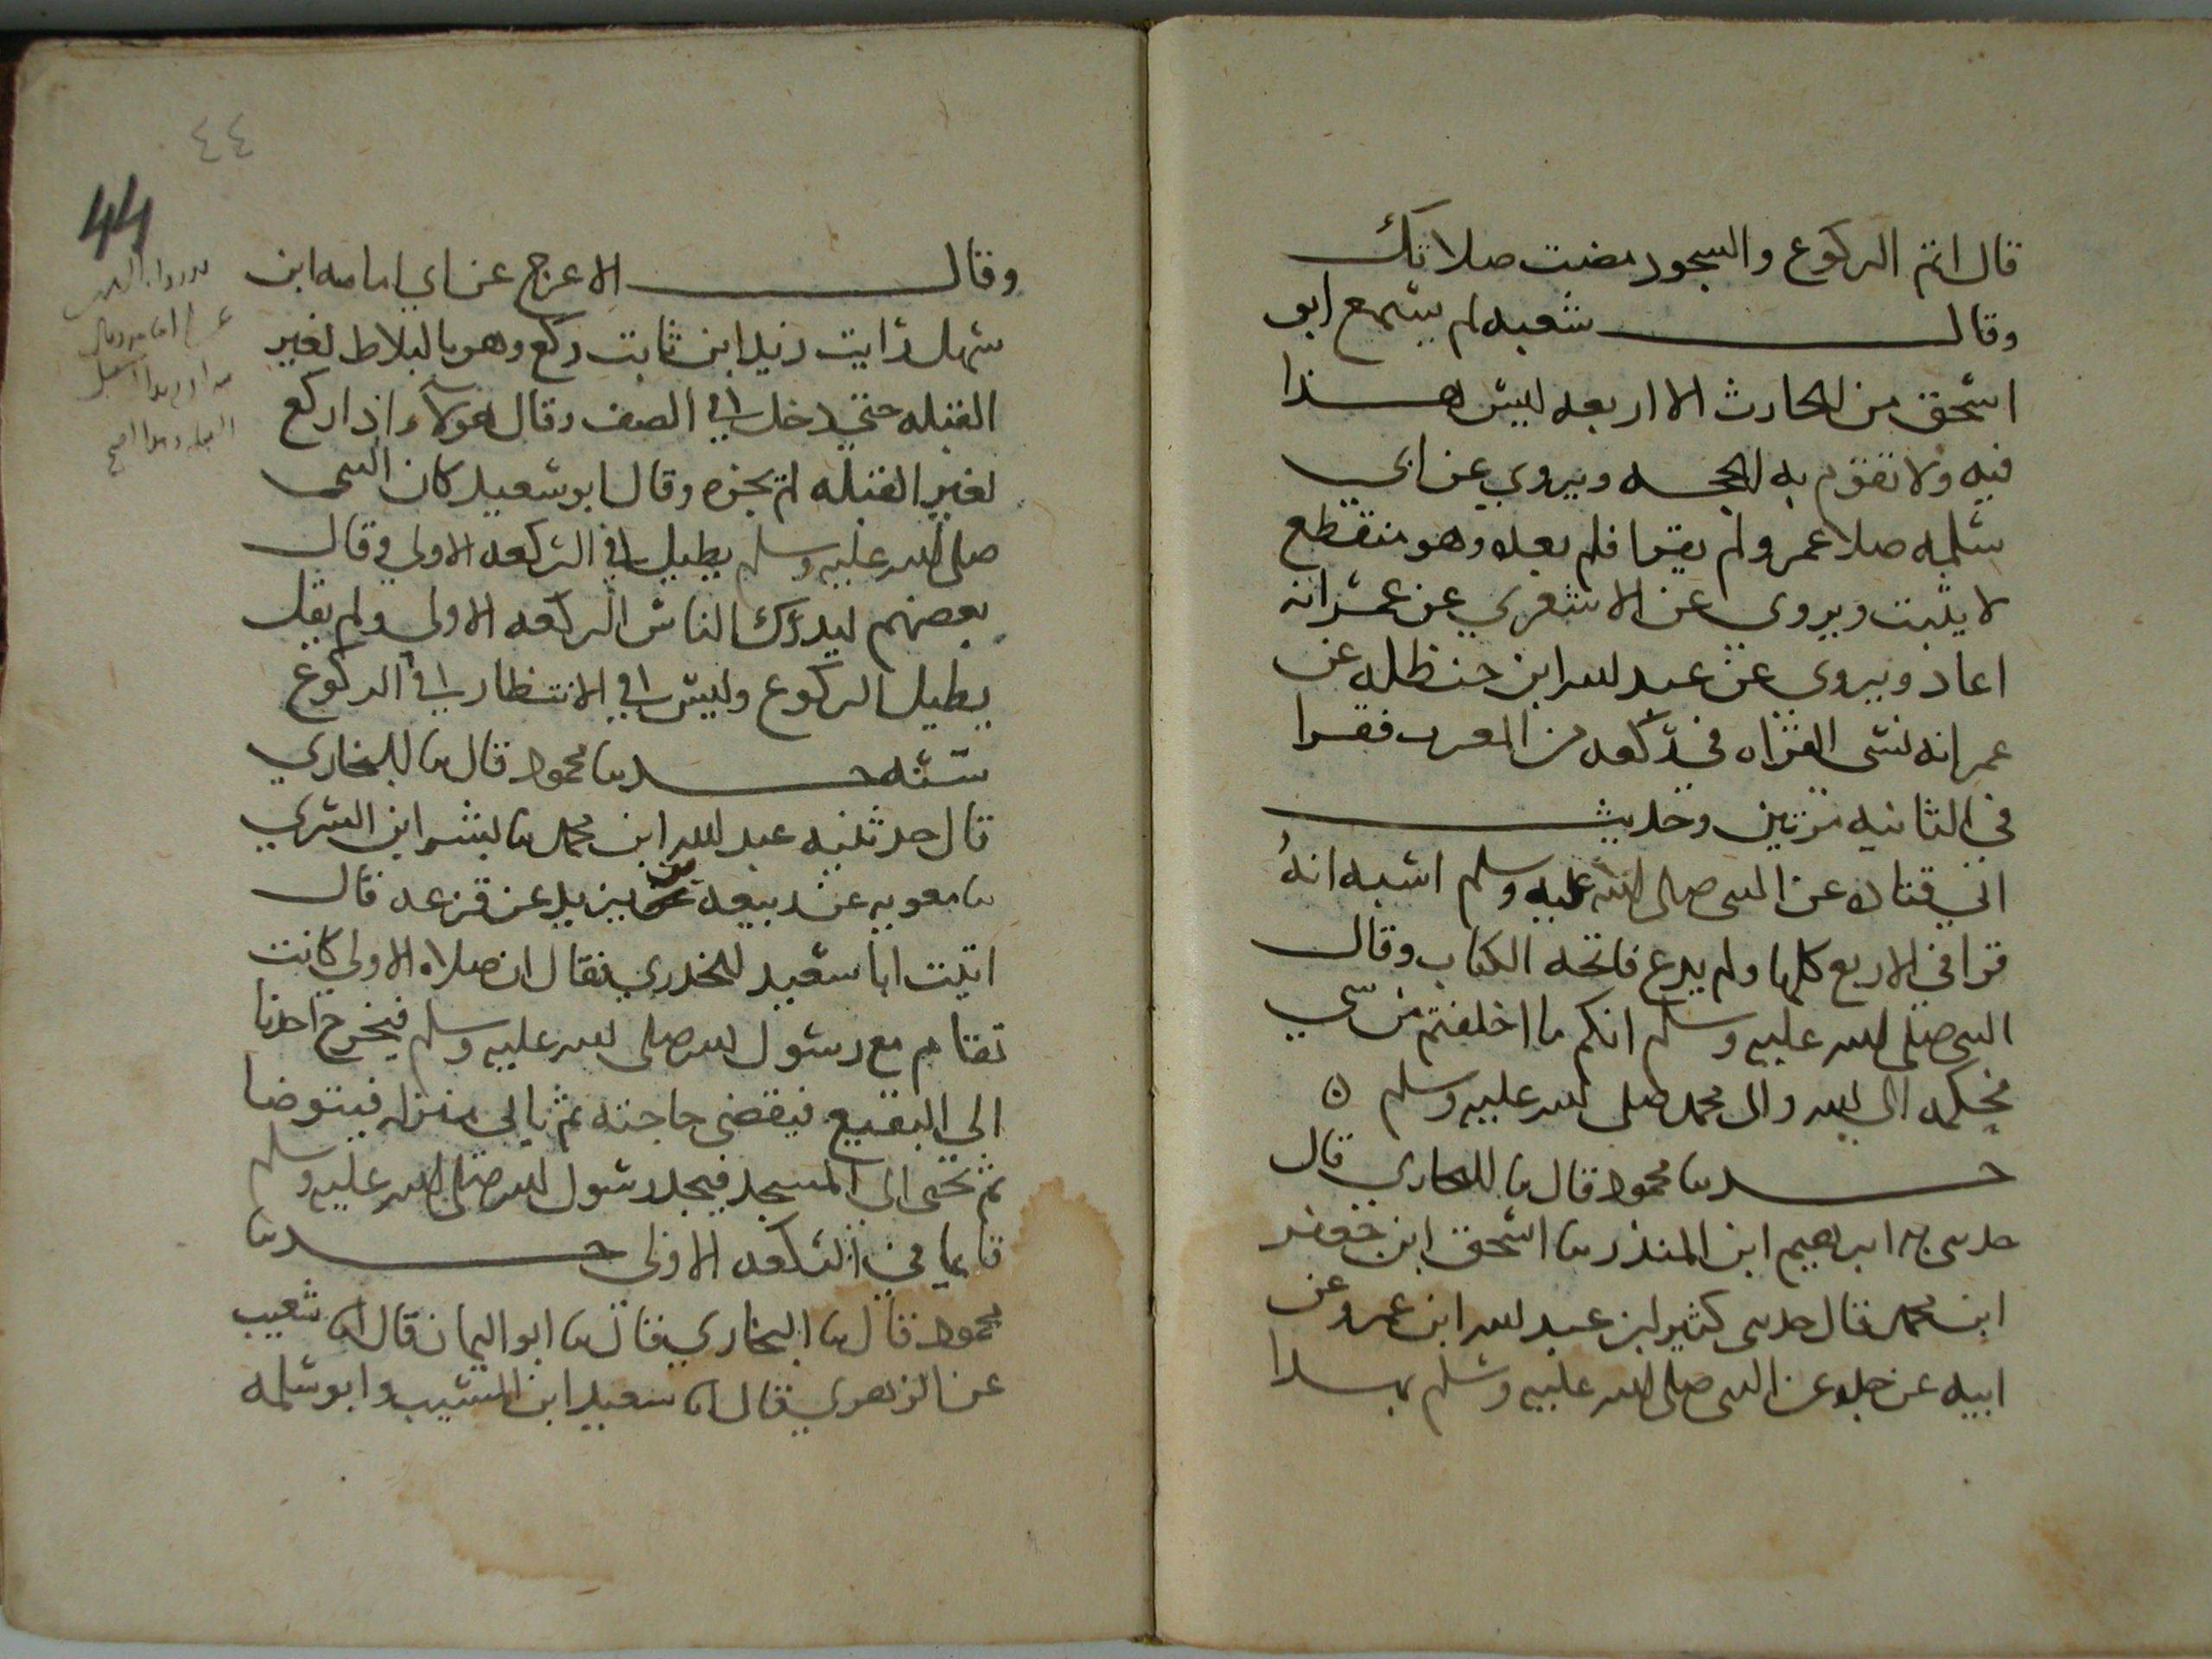 قال اتم الركوع والسجود مضت صلاتك
وقال شعبه لم يسمع ابو
اسحق من الحارث الا اربعه ليس هذا
فيه ولا تقوم به الحجه ويروي عن ابي
سلمه صلا عمر ولم يقرا فلم يعده وهو منقطع
لا يثبت ويروى عن الاشعري عن عمر انه
اعاد ويروى عن عبد الله ابن حنظله عن
عمر انه نسى القراه في ركعه من المغرب فقرا
في الثانيه مرتين وحديث
ابي قتاده عن النبي صلى الله عليه وسلم اشبه انه
قرا في الاربع كلها ولم يدع فاتحه الكتاب وقال
النبي صلى الله عليه وسلم انكم ما اختلفتم من شي
فحكمه الى الله والى محمد صلى الله عليه وسلم ه
حدثنا محمود قال نا البخاري قال
حدثني به ابراهيم ابن المنذر نا اسحق ابن جعفر
ابن محمد قال حدثني كثير ابن عبد الله ابن عمرو عن
ابيه عن جده عن النبي صلى الله عليه وسلم بهذا
٤٤
44
وقال الاعرج عن ابي امامه ابن
سهل رايت زيد ابن ثابت ركع وهو بالبلاط لغير
القبله حتى دخل في الصف وقال هولا اذا ركع
لغير القبله لم يجزه وقال ابو سعيد كان النبي
صلى الله عليه وسلم يطيل في الركعه الاولي وقال
بعضهم ليدرك الناس الركعه الاولي ولم يقل
يطيل الركوع وليس في الانتظار في الركوع
سنه حدثنا محمود قال نا البخاري
قال حدثنيه عبد الله ابن محمد نا بشر ابن السري
نا معويه عن ربيعه بن يزيد عن قزعه قال
اتيت ابا سعيد الخدري فقال ان صلاه الاولي كانت
تقام مع رسول الله صلى الله عليه وسلم فيخرج احدنا
الي البقيع فيقضى حاجته ثم ياتي منزله فيتوضا
ثم يجى الى المسجد فيجد رسول الله صلى الله عليه وسلم
قايما في الركعه الاولى حدثنا
محمود قال نا البخاري قال نا ابو اليمان قال انا شعيب
عن الزهري قال انا سعيد ابن المسيب وابو سلمه